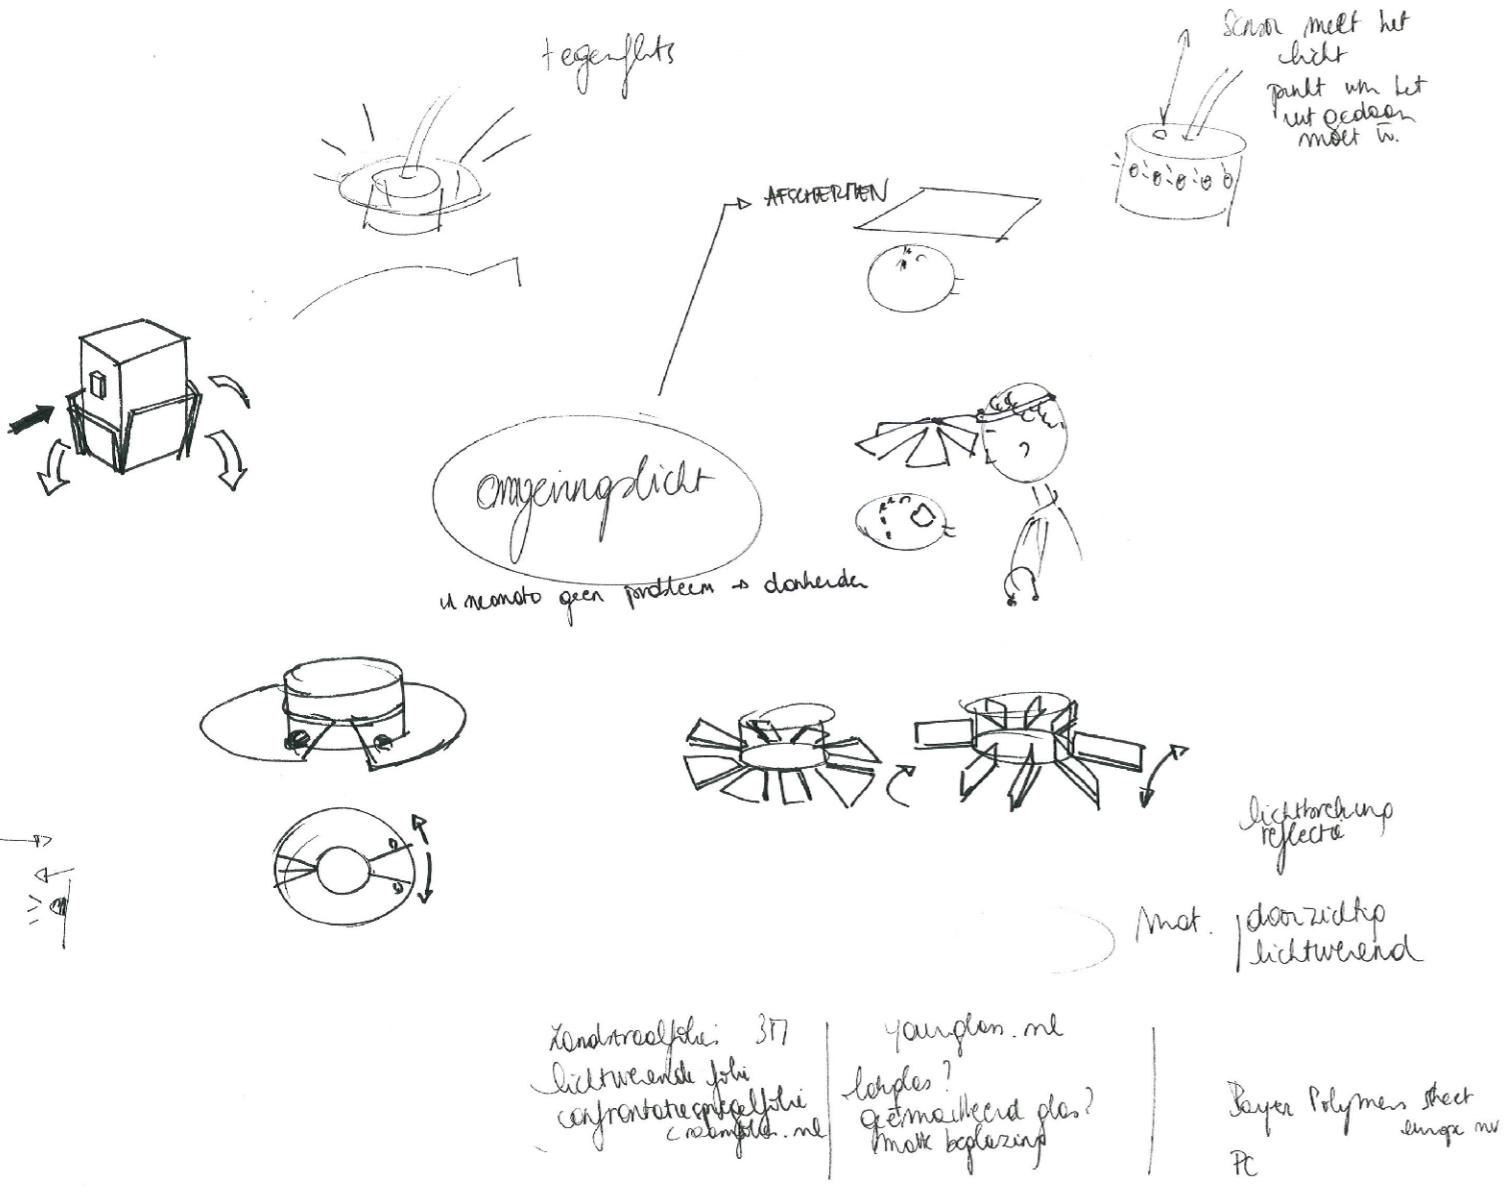 tegenflits
Sensor meet het
licht
punt wnr het
uit gedaan
moet w.
AFSCHERMEN
omgevingslicht
neonato geen probleem → donkerder
lichtbreking
reflectie
mat. doorzichtig
lichtwerend
Zandstraalfolie 3M
lichtwerende folie
confrontatiespiegelfolie
yourglass.nl
geëmailleerd glas?
matte beglazing
Bayer Polymers Sheet
europe nv
PC